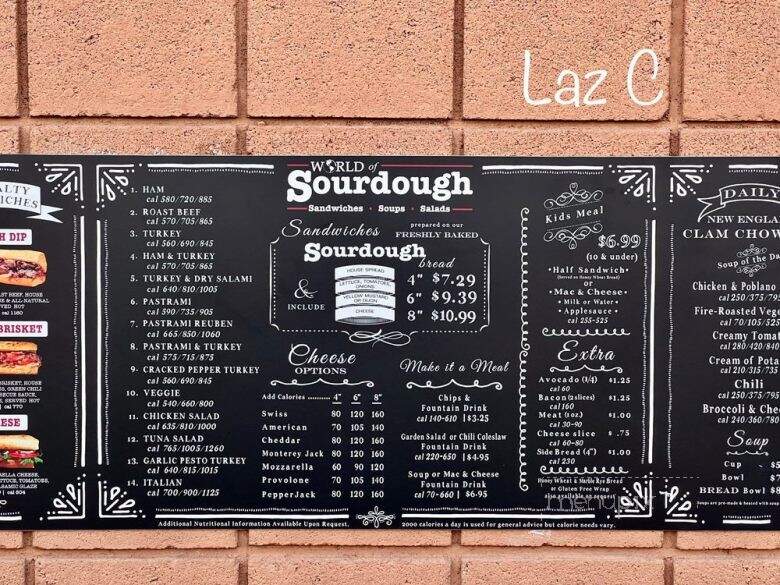 Laz C
ALTY
ICHES
H DIP
cal 1160
BRISKET
cal 770
ESE
cal 804
1. HAM
cal 580/720/885
2. ROAST BEEF
cal 570/705/865
3. TURKEY
cal 560/690/845
4. HAM & TURKEY
cal 570/705/865
5. TURKEY & DRY SALAMI
cal 640/810/1005
6. PASTRAMI
cal 590/735/905
7. PASTRAMI REUBEN
cal 665/850/1060
8. PASTRAMI & TURKEY
cal 575/715/875
9. CRACKED PEPPER TURKEY
cal 560/690/845
10. VEGGIE
cal 540/660/800
11. CHICKEN SALAD
cal 635/810/1000
12. TUNA SALAD
cal 765/1005/1260
13. GARLIC PESTO TURKEY
cal 640/815/1015
14. ITALIAN
cal 700/900/1125
WORLD of
Sourdough
Sandwiches · Soups · Salads
Sandwiches prepared on our FRESHLY BAKED
Sourdough bread
HOUSE SPREAD
LETTUCE, TOMATOES, ONIONS
YELLOW MUSTARD OR DIJON
CHEESE
& INCLUDE
4" $7.29
6" $9.39
8" $10.99
Cheese
OPTIONS
Add Calories .......... 4" 6" 8"
Swiss 80 120 160
American 70 105 140
Cheddar 80 120 160
Monterey Jack 80 120 160
Mozzarella 60 90 120
Provolone 70 105 140
PepperJack 80 120 160
Make it a Meal
Chips &
Fountain Drink
cal 140-610 | $3.25
Garden Salad or Chili Coleslaw
Fountain Drink
cal 220-650 | $4.95
Soup or Mac & Cheese
Fountain Drink
cal 70-660 | $6.95
Kids Meal
$6.99
(10 & under)
•Half Sandwich•
(Served on Honey Wheat Bread)
or
•Mac & Cheese•
• Milk or Water •
• Applesauce •
cal 255-525
Extra
Avocado (1/4) $1.25
cal 60
Bacon (2 slices) $1.25
cal 160
Meat (1oz) $1.00
cal 30-90
Cheese slice $ .75
cal 60-80
Side Bread (4") $1.00
cal 230
Honey Wheat & Marble Rye Bread
or Gluten Free Wrap
also available on request
DAILY
NEW ENGLA
CLAM CHOW
Soup of the Da
Chicken & Poblano
cal 250/375/7
Fire-Roasted Vege
cal 70/105/52
Creamy Tomat
cal 280/420/84
Cream of Pota
cal 210/315/735
Chili
cal 250/375/795
Broccoli & Chee
cal 240/360/780
Soup
Cup - $5
Bowl $7
BREAD Bowl $8
Additional Nutritional Information Available Upon Request.
2000 calories a day is used for general advice but calorie needs vary.